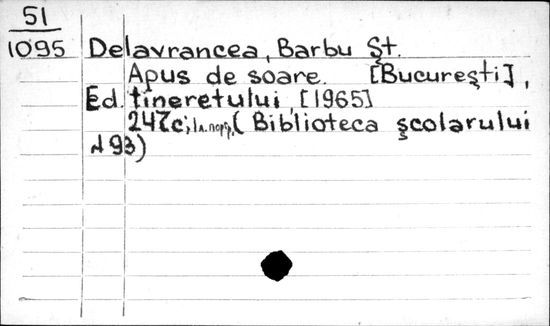 51
1095 Delavrancea, Barbu Șt.
Apus de soare. [București],
Ed. tineretului, [1965]
247c; 1л. порт, (Biblioteca școlarului
N 93)